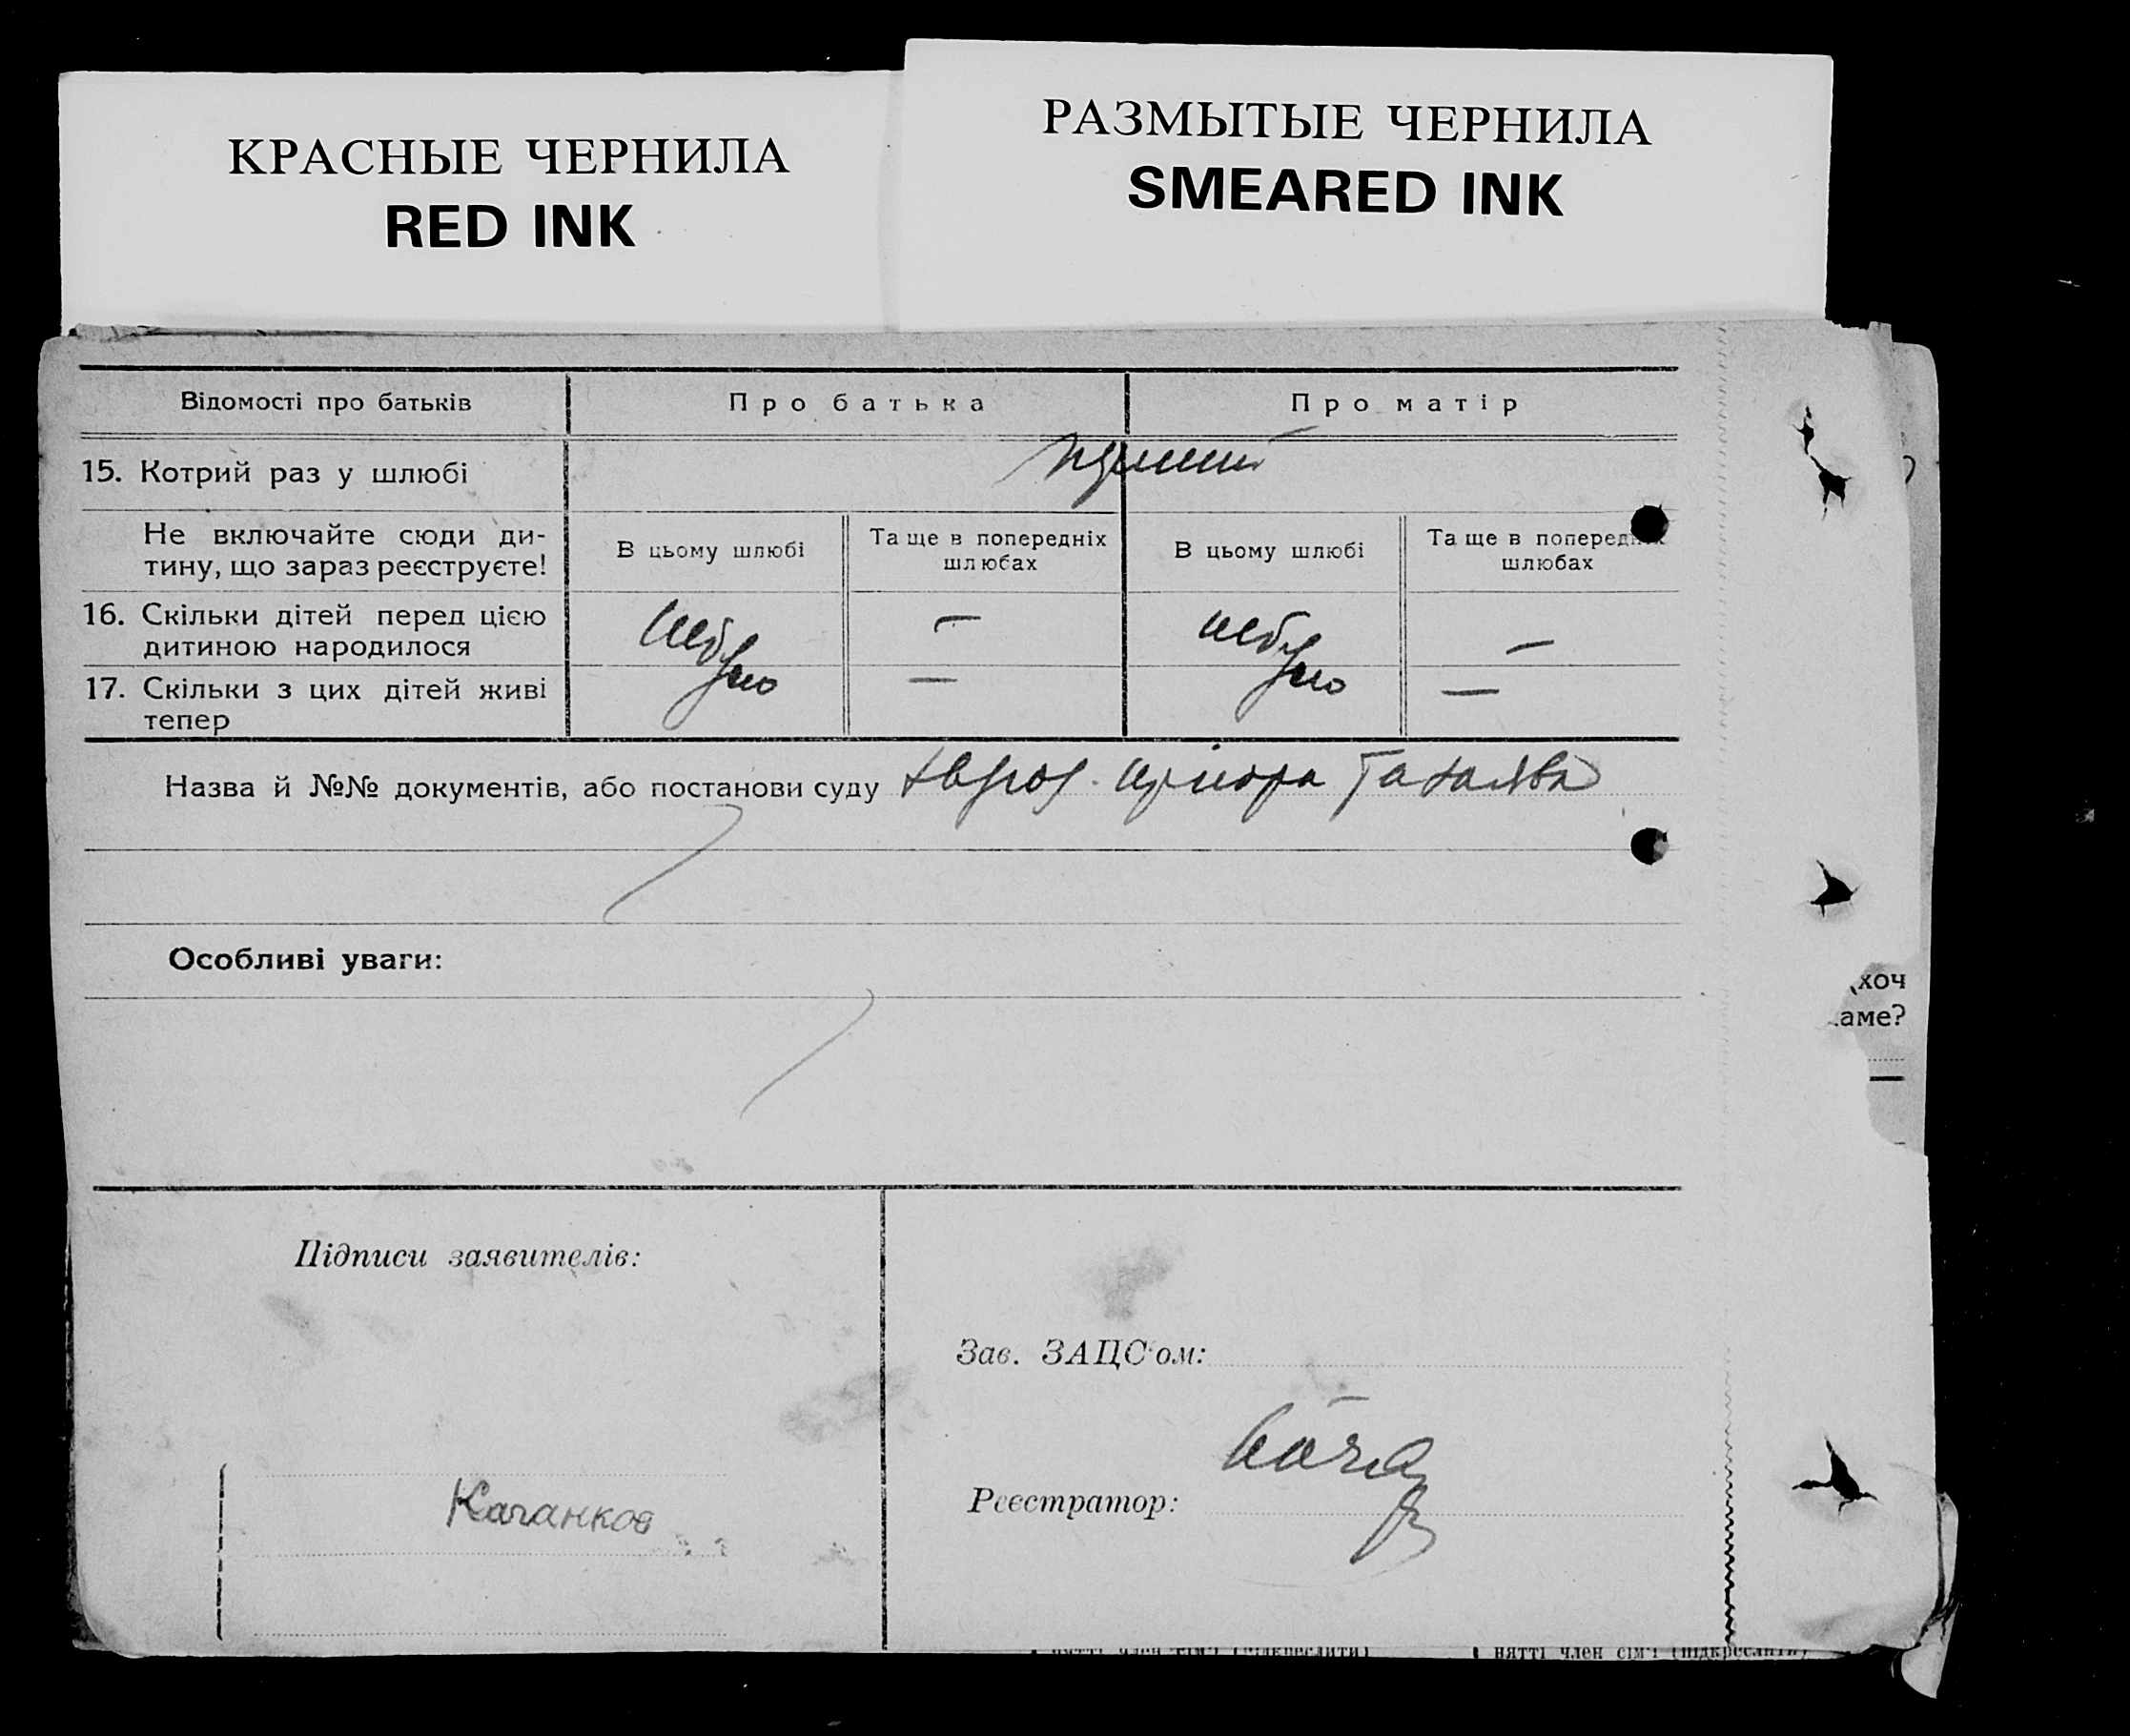 КРАСНЫЕ ЧЕРНИЛА
RED INK
РАЗМЫТЫЕ ЧЕРНИЛА
SMEARED INK
Відомості про батьків
Про батька
Про матір
15. Котрий раз у шлюбі
Не включайте сюди ди-
тину, що зараз реєструєте!
В цьому шлюбі
Та ще в попередніх
шлюбах
В цьому шлюбі
Та ще в
шлюбах
16. Скільки дітей перед цією
дитиною народилося
— —
17. Скільки з цих дітей живі
тепер
— —
Назва й №№ документів, або постанови суду
Особливі уваги:
Підписи заявителів:
Зав. ЗАЦС'ом:
Реєстратор:
хоч
аме?
нятті член сім'ї (підкреслити)
нятті член сім'ї (підкреслити)